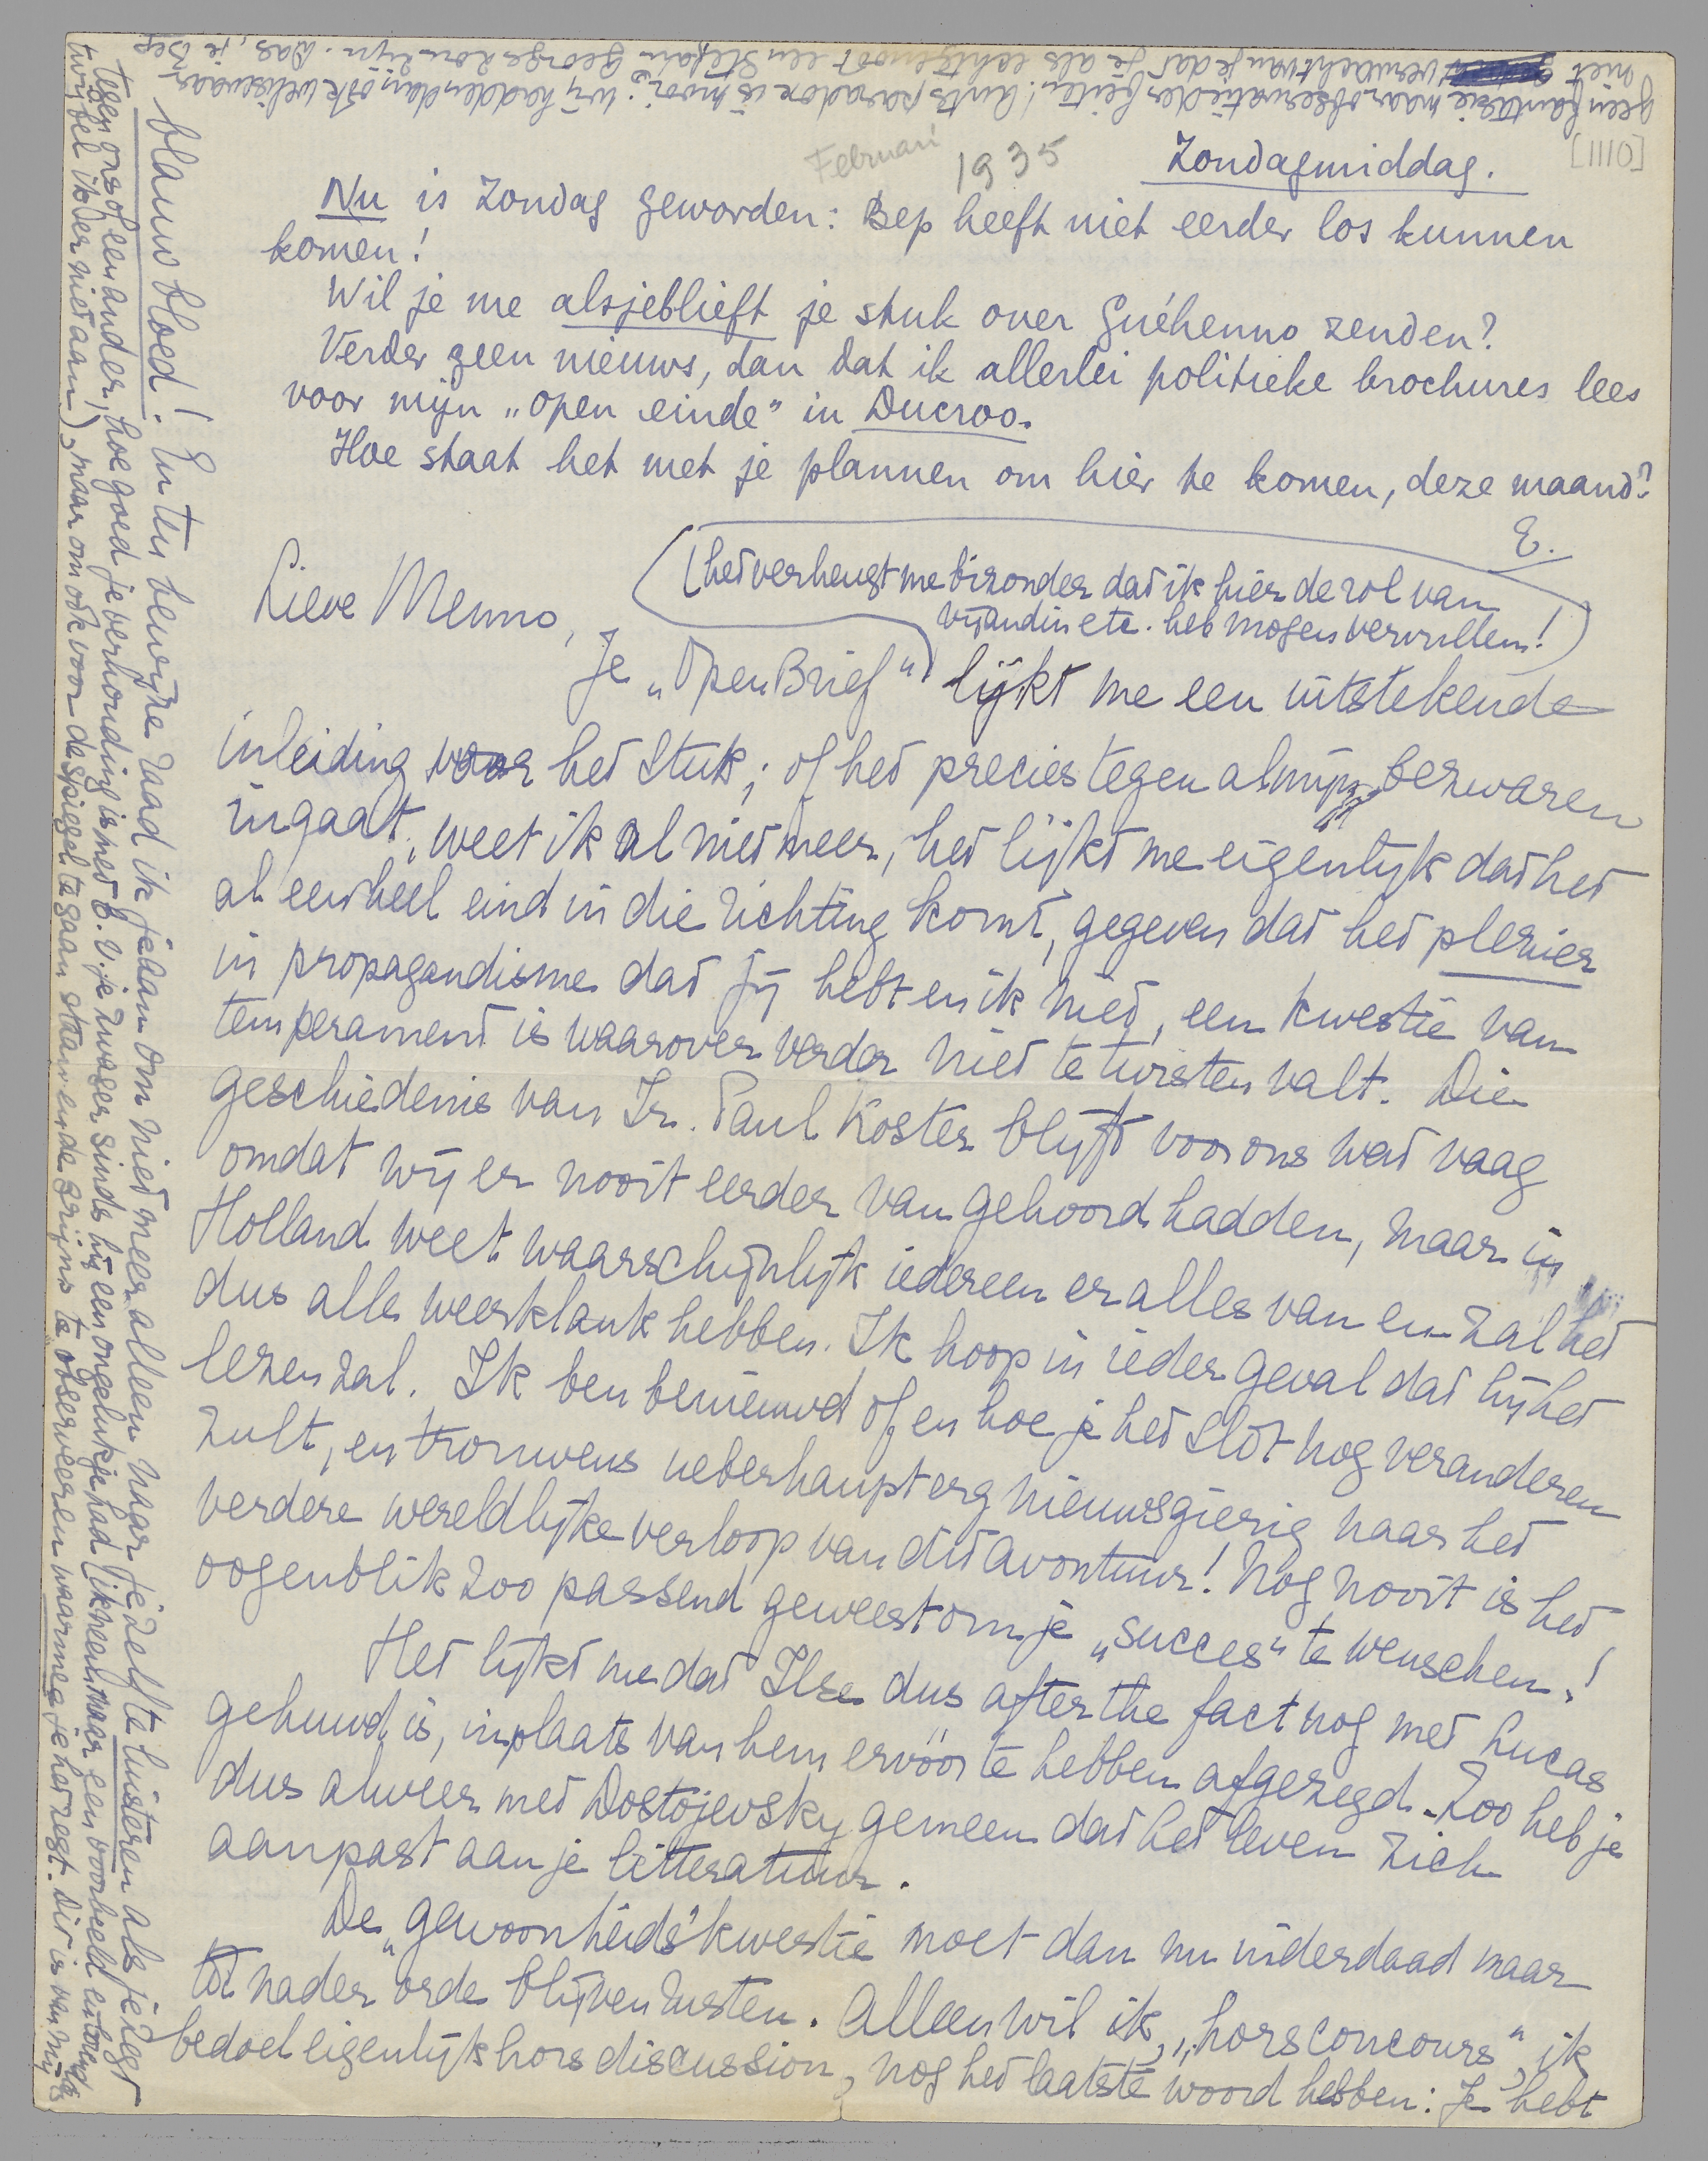 [1110]
Februari 1935
Zondagmiddag.
Nu is Zondag geworden: Bep heeft niet eerder los kunnen
komen!
Wil je me alsjeblieft je stuk over Guéhenno zenden?
Verder geen nieuws, dan dat ik allerlei politieke brochures lees
voor mijn „open einde" in Ducroo.
Hoe staat het met je plannen om hier te komen, deze maand?
E.
Lieve Menno,
(het verheugt me bizonder dat ik hier de rol van
vijandin etc. heb mogen vervullen!)
Je „Open Brief" lijkt me een uitstekende
inleiding voor het stuk; of het precies tegen al mijn bezwaren
ingaat, weet ik al niet meer, het lijkt me eigenlijk dat het
al een heel eind in die richting komt, gegeven dat het plezier
in propagandisme dat jij hebt en ik niet, een kwestie van
temperament is waarover verder niet te twisten valt. Die
geschiedenis van Ir. Paul Koster blijft voor ons wat vaag
omdat wij er nooit eerder van gehoord hadden, maar in
Holland weet waarschijnlijk iedereen er alles van en zal het
dus alle weerklank hebben. Ik hoop in ieder geval dat hij het
lezen zal. Ik ben benieuwd of en hoe je het slot nog veranderen
zult, en trouwens ueberhaupt erg nieuwsgierig naar het
verdere wereldlijke verloop van dit avontuur! Nog nooit is het
oogenblik zoo passend geweest om je „succes" te wenschen!
Het lijkt me dat Ilse dus after the fact nog met Lucas
gehuwd is, inplaats van hem ervóór te hebben afgezegd. Zoo heb je
dus alweer met Dostojevsky gemeen dat het leven zich
aanpast aan je litteratuur.
De „gewoonheids"kwestie moet dan nu inderdaad maar
tot nader orde blijven rusten. Alleen wil ik, „hors concours", ik
bedoel eigenlijk hors discussion, nog het laatste woord hebben: Je hebt
blauw bloed! En ten bewijze raad ik je dan om niet meer alleen naar je zelf te luisteren als je zegt
tegen ons of een ander, hoe goed je verhouding is met b.v. je zwager sinds hij een ongelukje had (ik neem maar een voorbeeld
twijfel ik er niet aan), maar om ook voor de spiegel te gaan staan en de grijns te observeeren waarmee je het zegt. Dit is van mij
geen fantasie maar observatie der feiten! Ants paradox is mooi: wij hadden dan ook weliswaar
niet verwacht van je dat je als echtgenoot een Stefan George zou zijn. Das, je Bep